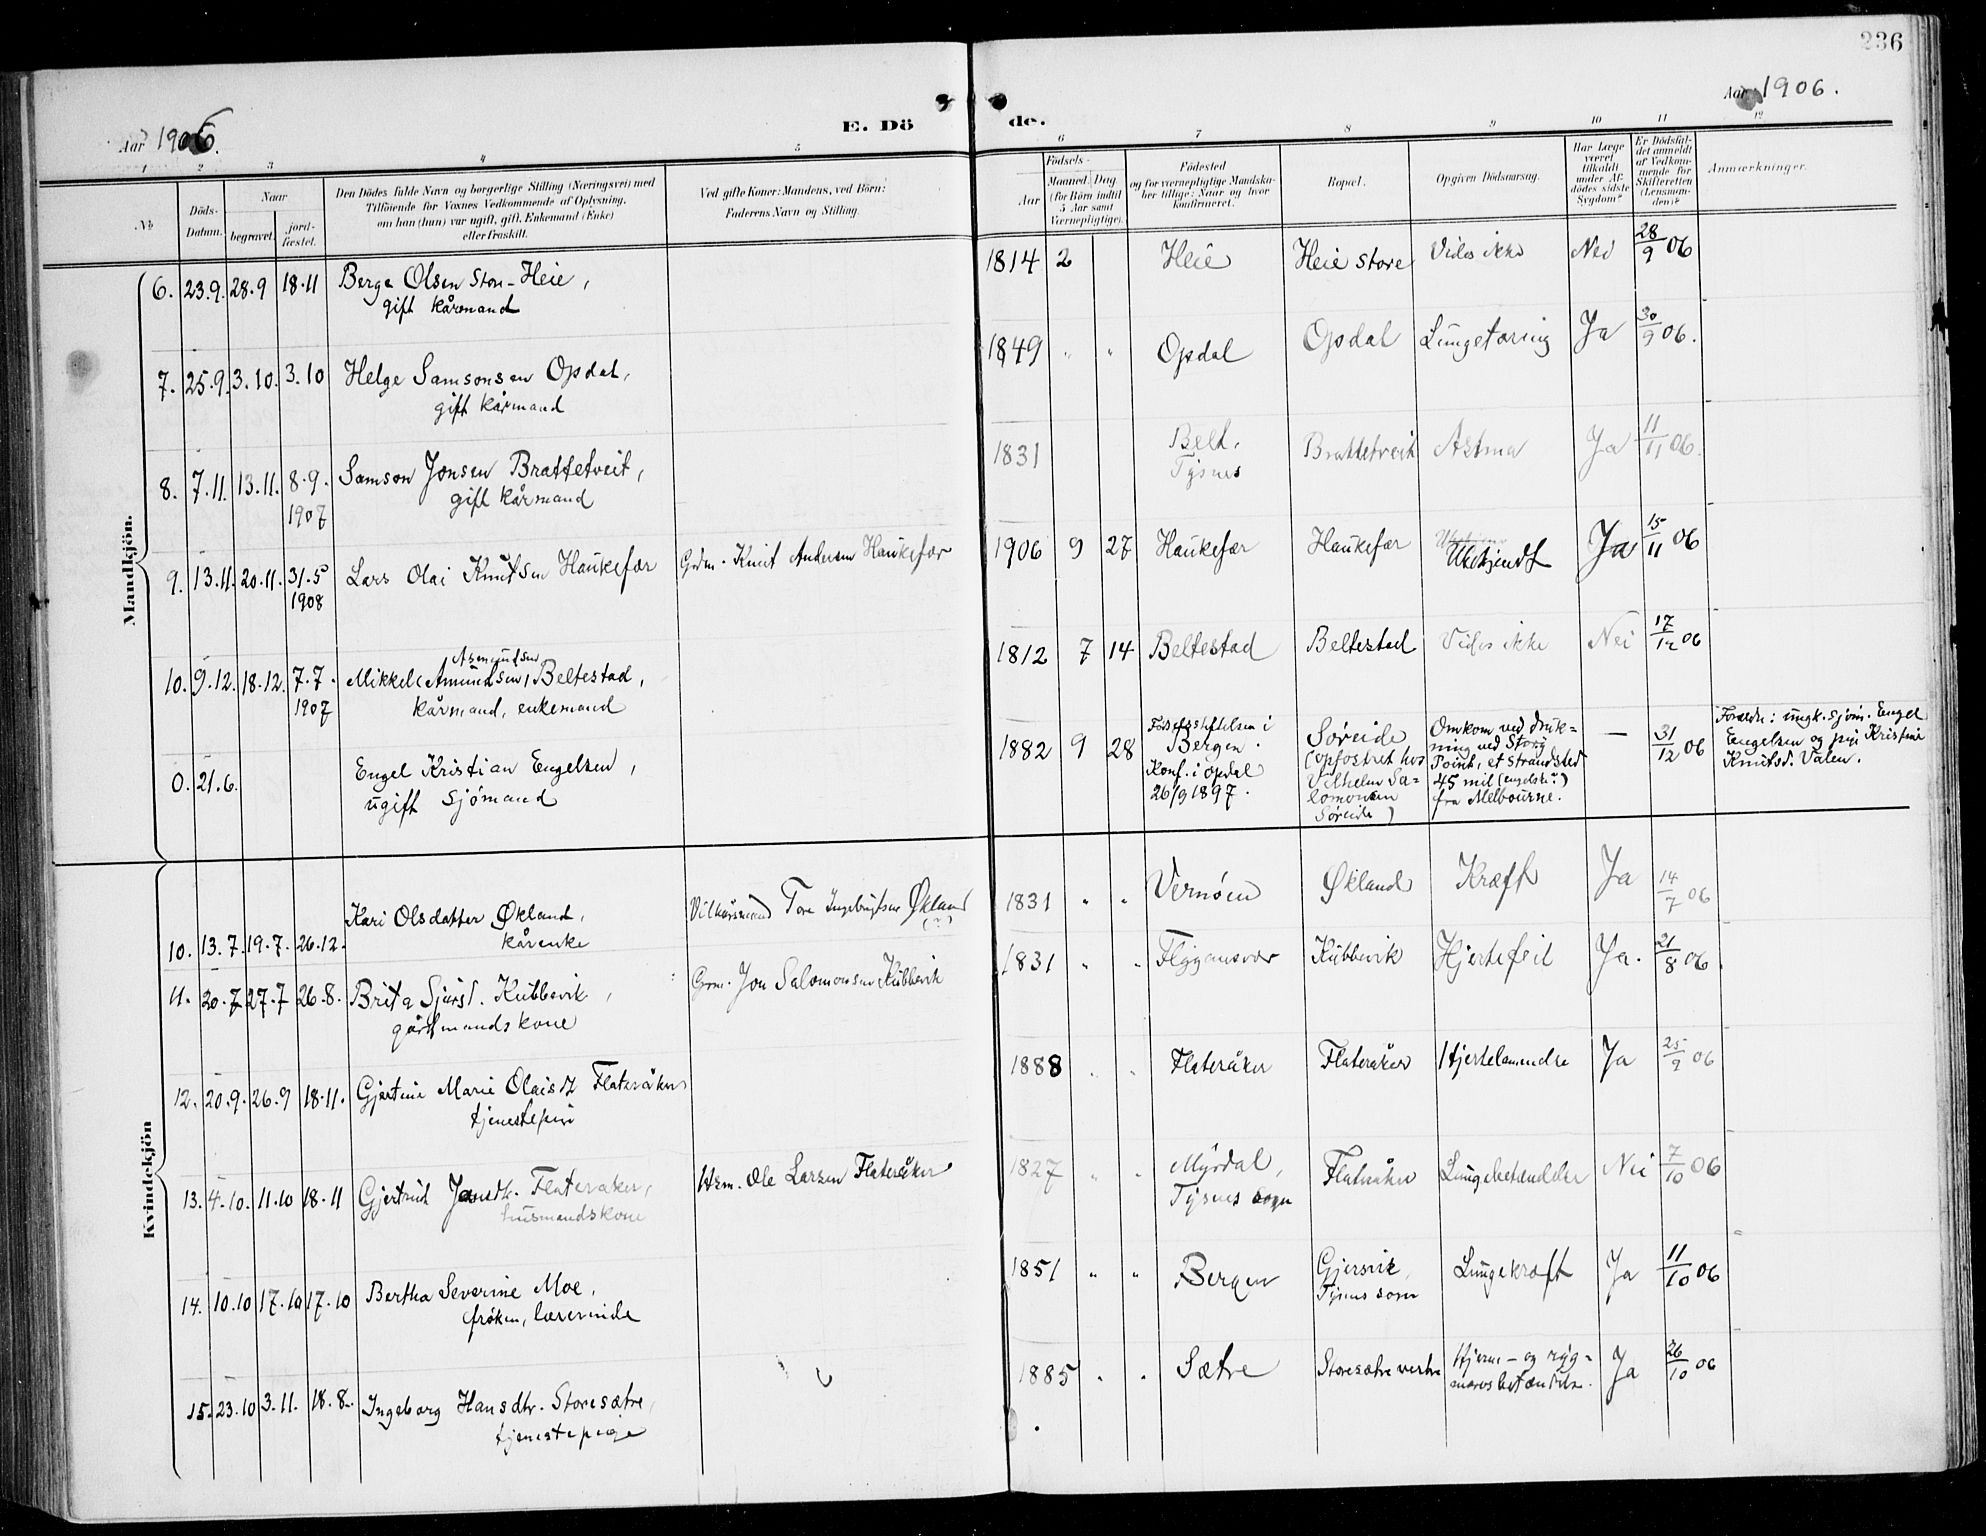 236
Aar 1906.
E. Döde.
Aar 1906.
1 2 3 4 5 6 7 8 9 10 11 12
No
Døds-Datum.
Naar
begravet. jord-fæstet.
Den Dödes fulde Navn og borgerlige Stilling (Næringsvei) med
Tilföiende for Voxnes Vedkommende af Oplysning,
om han (hun) var ugift, gift, Enkemand (Enke)
eller fraskilt.
Ved gifte Koner: Mandens, ved Börn:
Faderens Navn og Stilling.
Födsels-
Aar Maaned. Dag
(for Börn indtil
5 Aar samt
Værnepligtige).
Födested
og for værnepligtige Mandska-
ber tillige: Naar og hvor
konfirmeret.
Bopæl.
Opgiven Dödsaarsag.
Har Læge
været
tilkaldt
under Af-
dödes sidste
Sygdom?
Er Dödsfal-
det anmeldt
af Vedkom-
mende for
Skifteretten
(Lensman-
den)?
Anmærkninger.
Mandkjön.
6. 23.9. 28.9 18.11 Berge Olsen Store-Heie, 1814 2 Heie Heie store Vides ikke Nei 28/9 06
gift kårmand
7. 25.9. 3.10. 3.10 Helge Samsonsen Opdal, 1849 " " Opdal Opdal Lungetæring Ja 30/9 06.
gift kårmand
8. 7.11. 13.11. 8.9. Samson Jonsen Brattetveit, 1831 Belt, Brattetveit Astma Ja 11/11 06.
1907 gift kårmand Tysnes
9. 13.11. 20.11. 31.5 Lars Olai Knutsen Haukefær Grdm. Knut Andersen Haukefær 1906 9 27 Haukefær Haukefær Ubekjendt Ja 15/11 06
1908
10. 9.12. 18.12. 7.7. Mikkel (Amundsen) Beltestad, 1812 7 14 Beltestad Beltestad Vides ikke Nei 17/12 06
1907 kårmand, enkemand
0. 21.6. Engel Kristian Engelsen, 1882 9 28
ugift sjømand
Fødselsstiftelsen i
Bergen.
Konf. i Opdal
26/9 1897.
Søreide
(opfostret hos
Vilhelm Sa-
lomonsen
Søreide)
Omkom ved druk-
ning ved Stony
Point, et strandsted
45 mil (engelske)
fra Melbourne.
— 31/12 06
Forældre: ungk. sjøm. Engel
Engelsen og pige Kristine
Knutsd. Valen.
Kvindekjön
10. 13.7. 19.7. 26.12. Kari Olsdatter Økland, Vilkårsmand Tore Ingebrigtsen Økland 1831 " " Vernøen Økland Kræft Ja 14/7 06
kårenke
11. 20.7 27.7 26.8. Brita Sjursd. Kubbevik, Grm. Jon Salomonsen Kubbevik 1831 " " Flygansvær Kubbevik Hjertefeil Ja. 21/8 06
gårdmandskone
12. 20.9. 26.9 18.11. Gjertine Marie Olaisdt Flateråker 1888 " " Flateråker Flateråker Hjertelammelse Ja 25/9 06
tjenestepige
13. 4.10. 11.10 18.11 Gjertrud Jonsdtr. Flateråker, Hsm. Ole Larsen Flateråker 1827 " " Myrdal, Flateråker Lungebetændelse Nei 7/10 06
husmandskone Tysnes sogn
14. 10.10 17.10 17.10 Bertha Severine Moe, 1851 " " Bergen Gjersvik, Lungekræft Ja 11/10 06
frøken, lærerinde Tysnes sogn
15. 23.10 3.11. 18.8. Ingeborg Hansdtr. Storesætre, 1885 " " Sætre Storesætre vestre Hjerne- og ryg- Ja 26/10 06
tjenestepige marvsbetændelse.